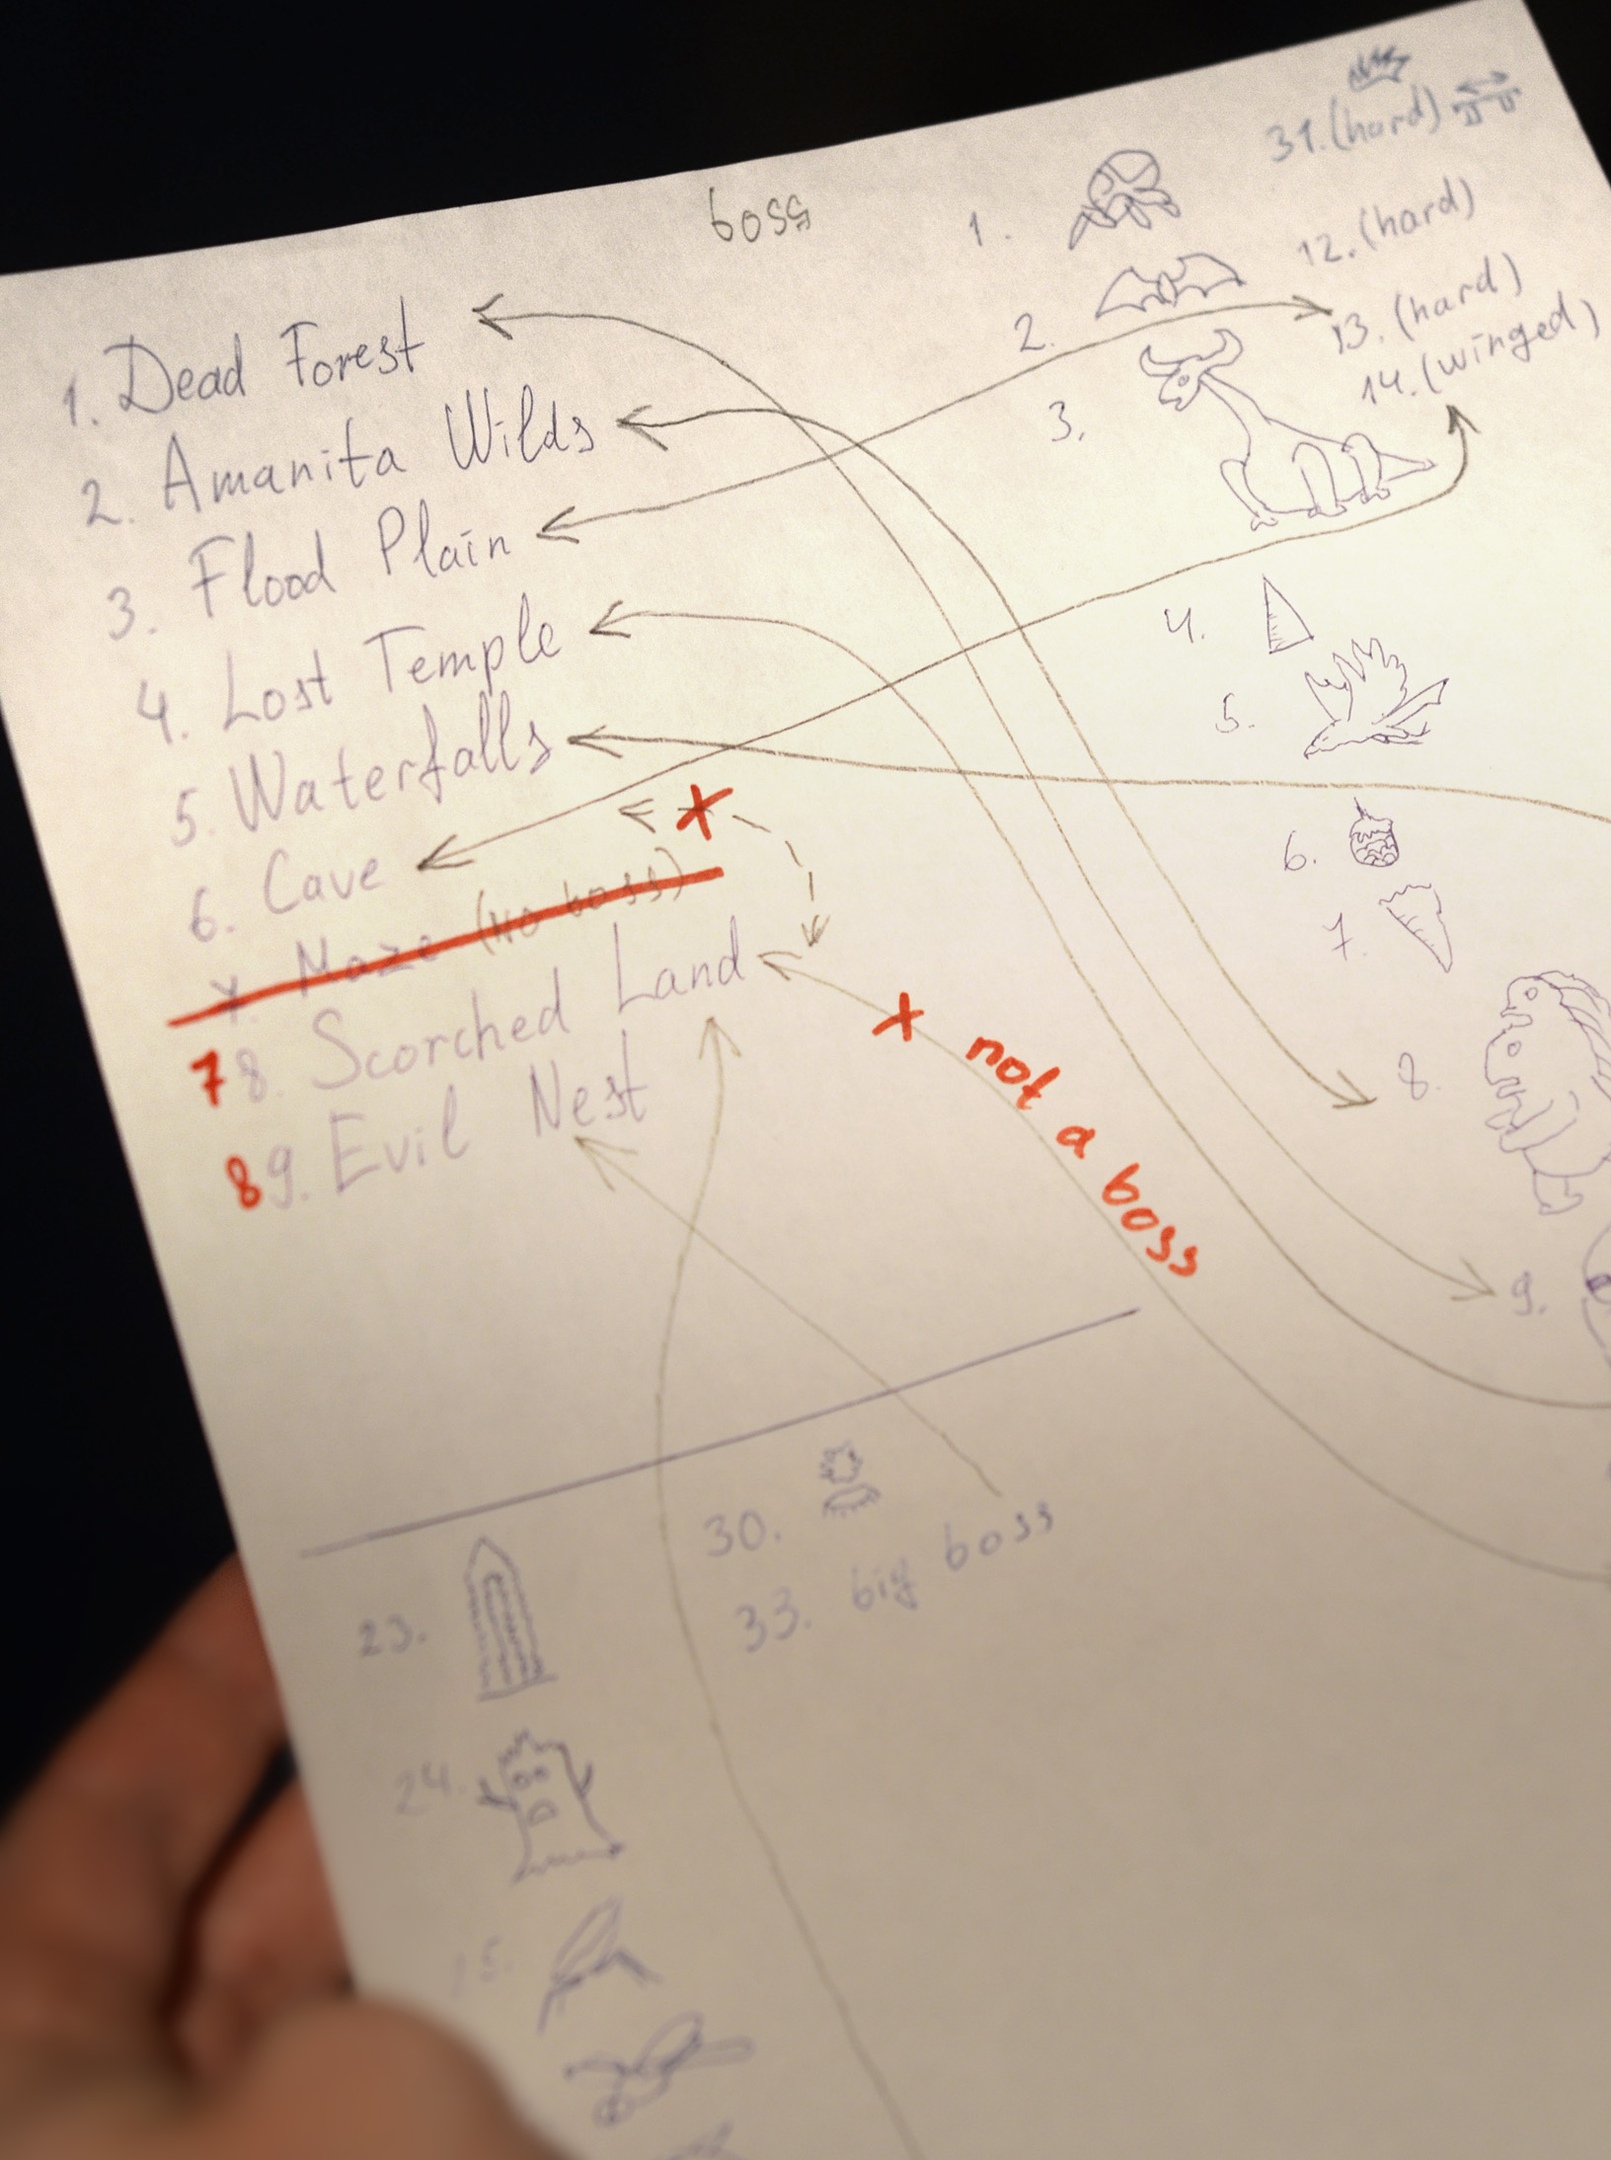 boss
1. Dead Forest
2. Amanita Wilds
3. Flood Plain
4. Lost Temple
5. Waterfalls
6. Cave
7. Maze (no boss)
7 8. Scorched Land
8 9. Evil Nest
not a boss
1.
2.
3.
4.
5.
6.
7.
8.
9.
31. (hard)
12. (hard)
13. (hard)
14. (winged)
23.
24.
30.
33. big boss